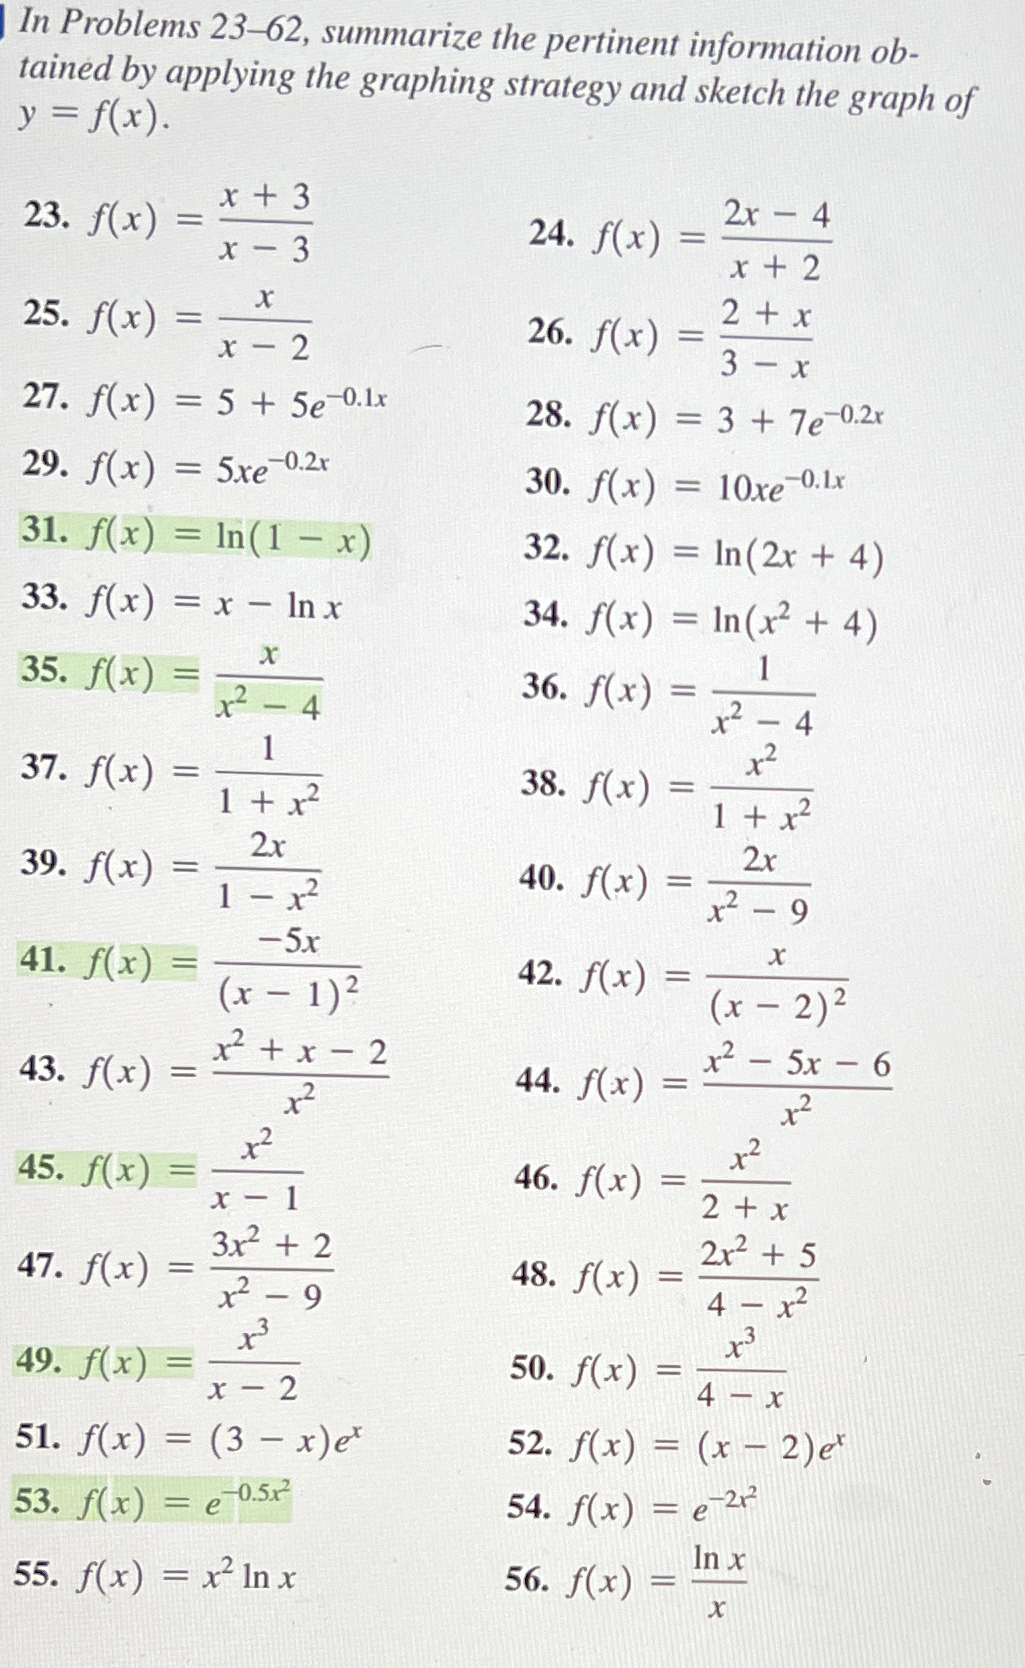 In Problems 23–62, summarize the pertinent information ob-
tained by applying the graphing strategy and sketch the graph of
y = f(x).
23. f(x) = (x + 3)/(x − 3)
24. f(x) = (2x − 4)/(x + 2)
25. f(x) = x/(x − 2)
26. f(x) = (2 + x)/(3 − x)
27. f(x) = 5 + 5e^(−0.1x)
28. f(x) = 3 + 7e^(−0.2x)
29. f(x) = 5xe^(−0.2x)
30. f(x) = 10xe^(−0.1x)
31. f(x) = ln(1 − x)
32. f(x) = ln(2x + 4)
33. f(x) = x − ln x
34. f(x) = ln(x² + 4)
35. f(x) = x/(x² − 4)
36. f(x) = 1/(x² − 4)
37. f(x) = 1/(1 + x²)
38. f(x) = x²/(1 + x²)
39. f(x) = 2x/(1 − x²)
40. f(x) = 2x/(x² − 9)
41. f(x) = −5x/(x − 1)²
42. f(x) = x/(x − 2)²
43. f(x) = (x² + x − 2)/x²
44. f(x) = (x² − 5x − 6)/x²
45. f(x) = x²/(x − 1)
46. f(x) = x²/(2 + x)
47. f(x) = (3x² + 2)/(x² − 9)
48. f(x) = (2x² + 5)/(4 − x²)
49. f(x) = x³/(x − 2)
50. f(x) = x³/(4 − x)
51. f(x) = (3 − x)e^x
52. f(x) = (x − 2)e^x
53. f(x) = e^(−0.5x²)
54. f(x) = e^(−2x²)
55. f(x) = x² ln x
56. f(x) = ln x/x